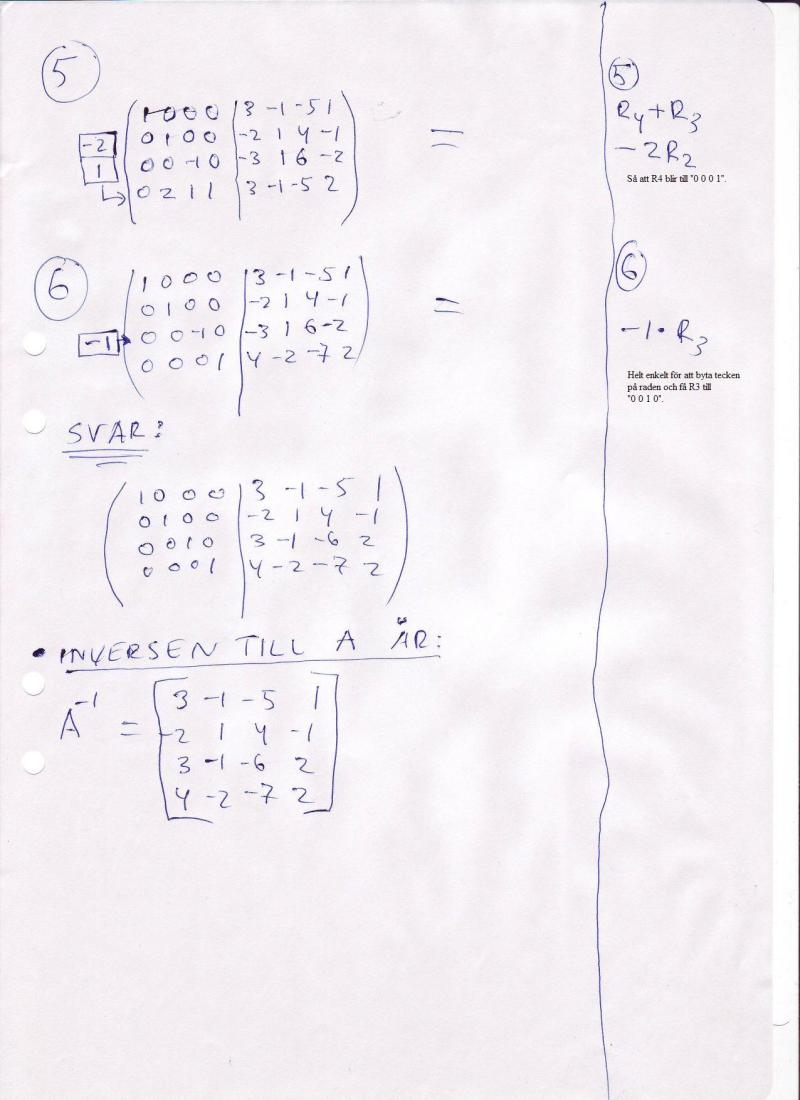 5
1 0 0 0 | 3 -1 -5 1
-2 0 1 0 0 | -2 1 4 -1 =
1 0 0 -1 0 | -3 1 6 -2
0 2 1 1 | 3 -1 -5 2
5
R4+R3
-2R2
Så att R4 blir till "0 0 0 1".
6
1 0 0 0 | 3 -1 -5 1
0 1 0 0 | -2 1 4 -1 =
-1 0 0 -1 0 | -3 1 6 -2
0 0 0 1 | 4 -2 -7 2
6
-1· R3
Helt enkelt för att byta tecken
på raden och få R3 till
"0 0 1 0".
SVAR:
1 0 0 0 | 3 -1 -5 1
0 1 0 0 | -2 1 4 -1
0 0 1 0 | 3 -1 -6 2
0 0 0 1 | 4 -2 -7 2
• INVERSEN TILL A ÄR:
A-1 =
3 -1 -5 1
-2 1 4 -1
3 -1 -6 2
4 -2 -7 2